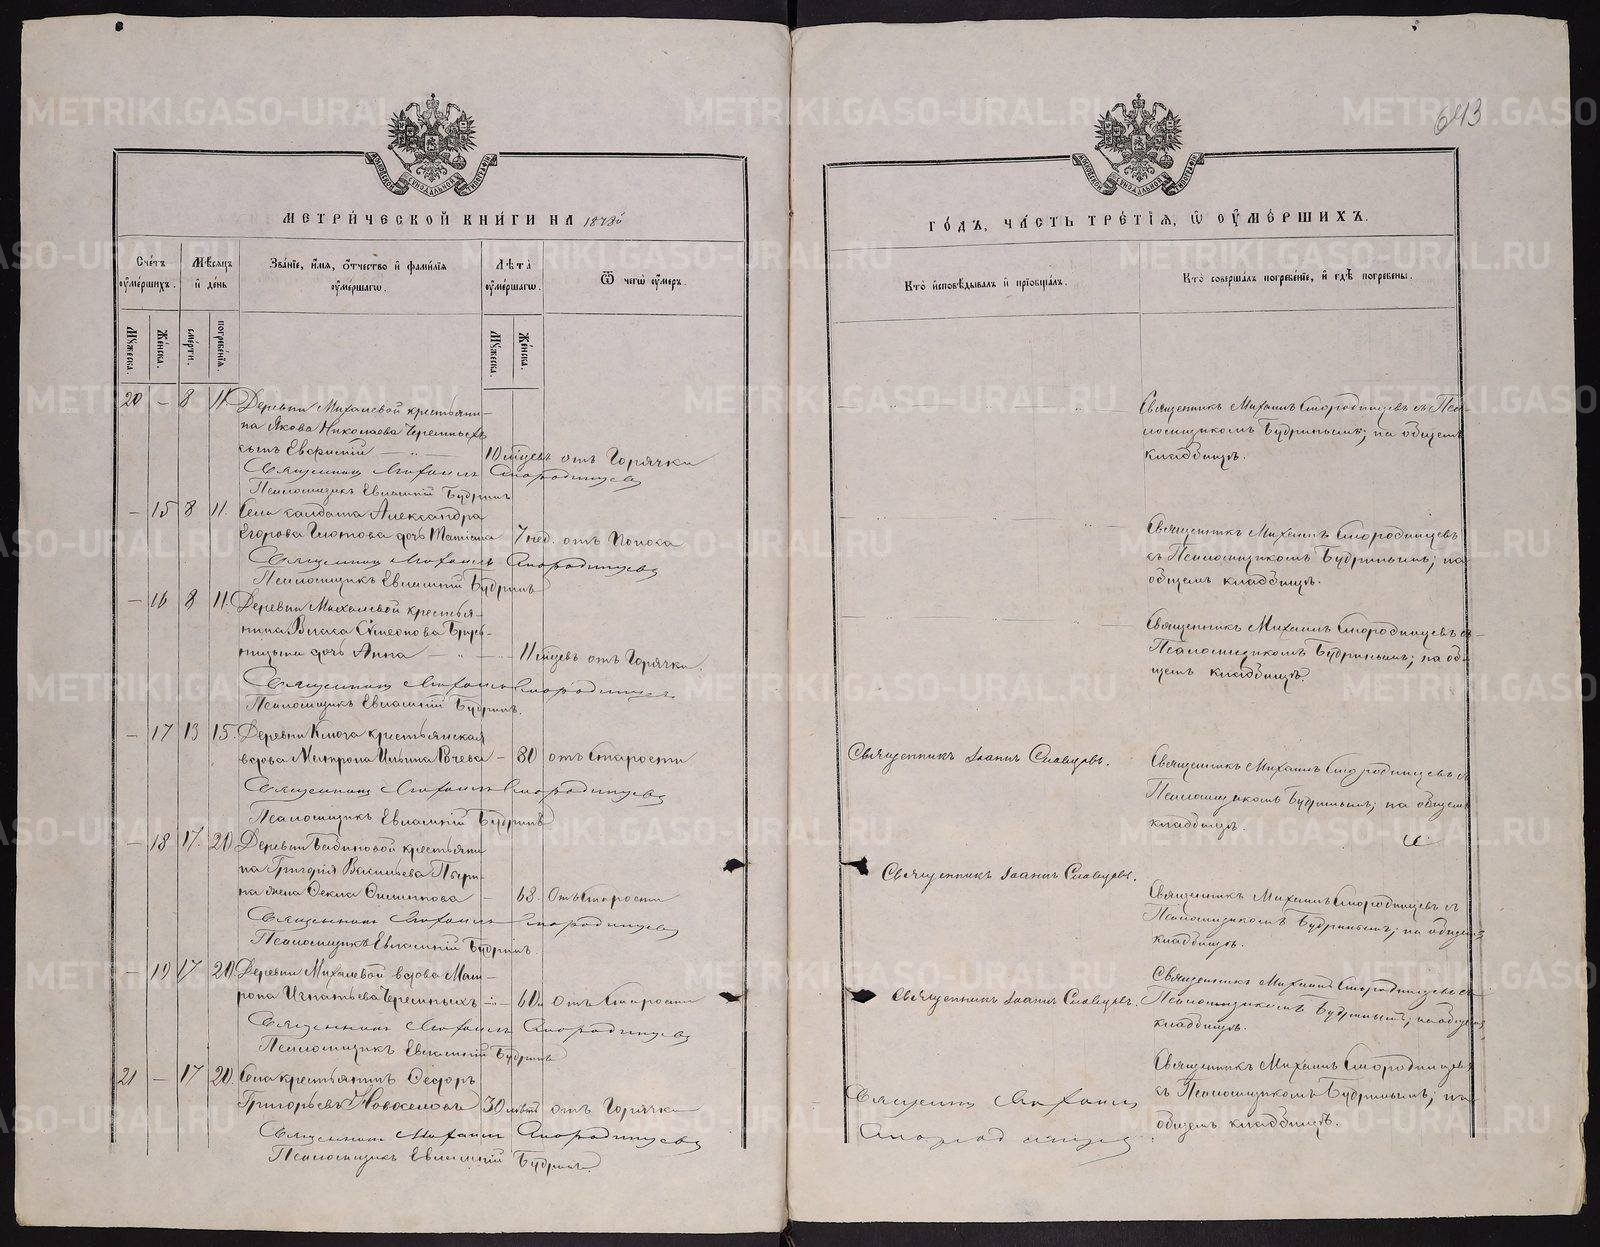 643
МЕТРИ́ЧЕСКОЙ КНИ́ГИ НА 1878й
Счетъ оумершихъ.
Мѣсяцъ и день
Зва́нїе, и́мя, о́тчество и фами́лїя оумершагѡ.
Лѣта оумершагѡ.
Ѿ чегѡ оумеръ.
Мужеска.
Женска.
смерти.
погребенїя.
Мужеска.
Женска.
20 — 8 11. Деревни Михалевой крестьяни-
на Якова Николаева Черемныхъ
сынъ Евфимій — 10 мѣсяц. отъ Горячки
Священникъ Михаилъ Смородинцевъ
Псаломщикъ Евлампій Будринъ
— 15 8 11. Села солдата Александра
Егорова дочь Татіана 7 нед. отъ Поноса
Священникъ Михаилъ Смородинцевъ
Псаломщикъ Евлампій Будринъ
— 16 8 11. Деревни Михалевой крестья-
нина Власа Симеонова
дочь Анна — 11 мѣсяц. отъ Горячки.
Священникъ Михаилъ Смородинцевъ
Псаломщикъ Евлампій Будринъ.
— 17 13 15. Деревни Ключа крестьянская
вдова Матрона Ильина — 80 отъ Старости
Священникъ Михаилъ Смородинцевъ
Псаломщикъ Евлампій Будринъ
— 18 17. 20. Деревни крестьяни-
на Григорія Васильева
жена Ѳекла Филиппова — 63. Отъ Старости
Священникъ Михаилъ Смородинцевъ
Псаломщикъ Евлампій Будринъ.
— 19 17 20. Деревни Михалевой вдова Мат-
рона Игнатьева Черемныхъ — 60 отъ Старости
Священникъ Михаилъ Смородинцевъ
Псаломщикъ Евлампій Будринъ
21 — 17 20. Села крестьянинъ Ѳедоръ
Григорьевъ Новоселовъ 30 лѣтъ отъ Горячки
Священникъ Михаилъ Смородинцевъ
Псаломщикъ Евлампій Будринъ.
ГО́ДЪ, ЧА́СТЬ ТРЕ́ТЇЯ, Ѡ ОУМЕ́РШИХЪ.
Кто̀ исповѣдывалъ и прїобщалъ.
Кто̀ совершалъ погребенїе, и гдѣ погребены.
Священникъ Михаилъ Смородинцевъ съ Пса-
ломщикомъ Будринымъ; на общемъ
кладбищѣ.
Священникъ Михаилъ Смородинцевъ
съ Псаломщикомъ Будринымъ; на
общемъ кладбищѣ.
Священникъ Михаилъ Смородинцевъ съ
Псаломщикомъ Будринымъ; на об-
щемъ кладбищѣ.
Священникъ Іоаннъ Славцовъ.
Священникъ Михаилъ Смородинцевъ съ
Псаломщикомъ Будринымъ; на общемъ
кладбищѣ.
Священникъ Іоаннъ Славцовъ.
Священникъ Михаилъ Смородинцевъ съ
Псаломщикомъ Будринымъ; на общемъ
кладбищѣ.
Священникъ Іоаннъ Славцовъ.
Священникъ Михаилъ Смородинцевъ съ
Псаломщикомъ Будринымъ; на общемъ
кладбищѣ.
Священникъ Михаилъ
Смородинцевъ.
Священникъ Михаилъ Смородинцевъ
съ Псаломщикомъ Будринымъ; на
общемъ кладбищѣ.
METRIKI.GASO-URAL.RU